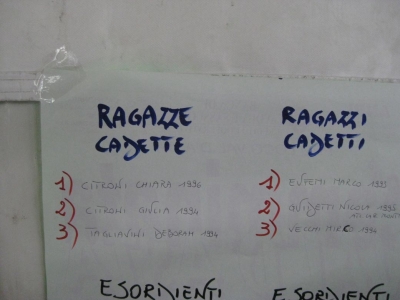 RAGAZZE
CADETTE
1) CITRONI CHIARA 1996
2) CITRONI GIULIA 1994
3) TAGLIAVINI DEBORAH 1994
ESORDIENTI
RAGAZZI
CADETTI
1) EUFEMI MARCO 1995
2) GUIDETTI NICOLA 1995
3) VECCHI MIRCO 1994
ESORDIENTI